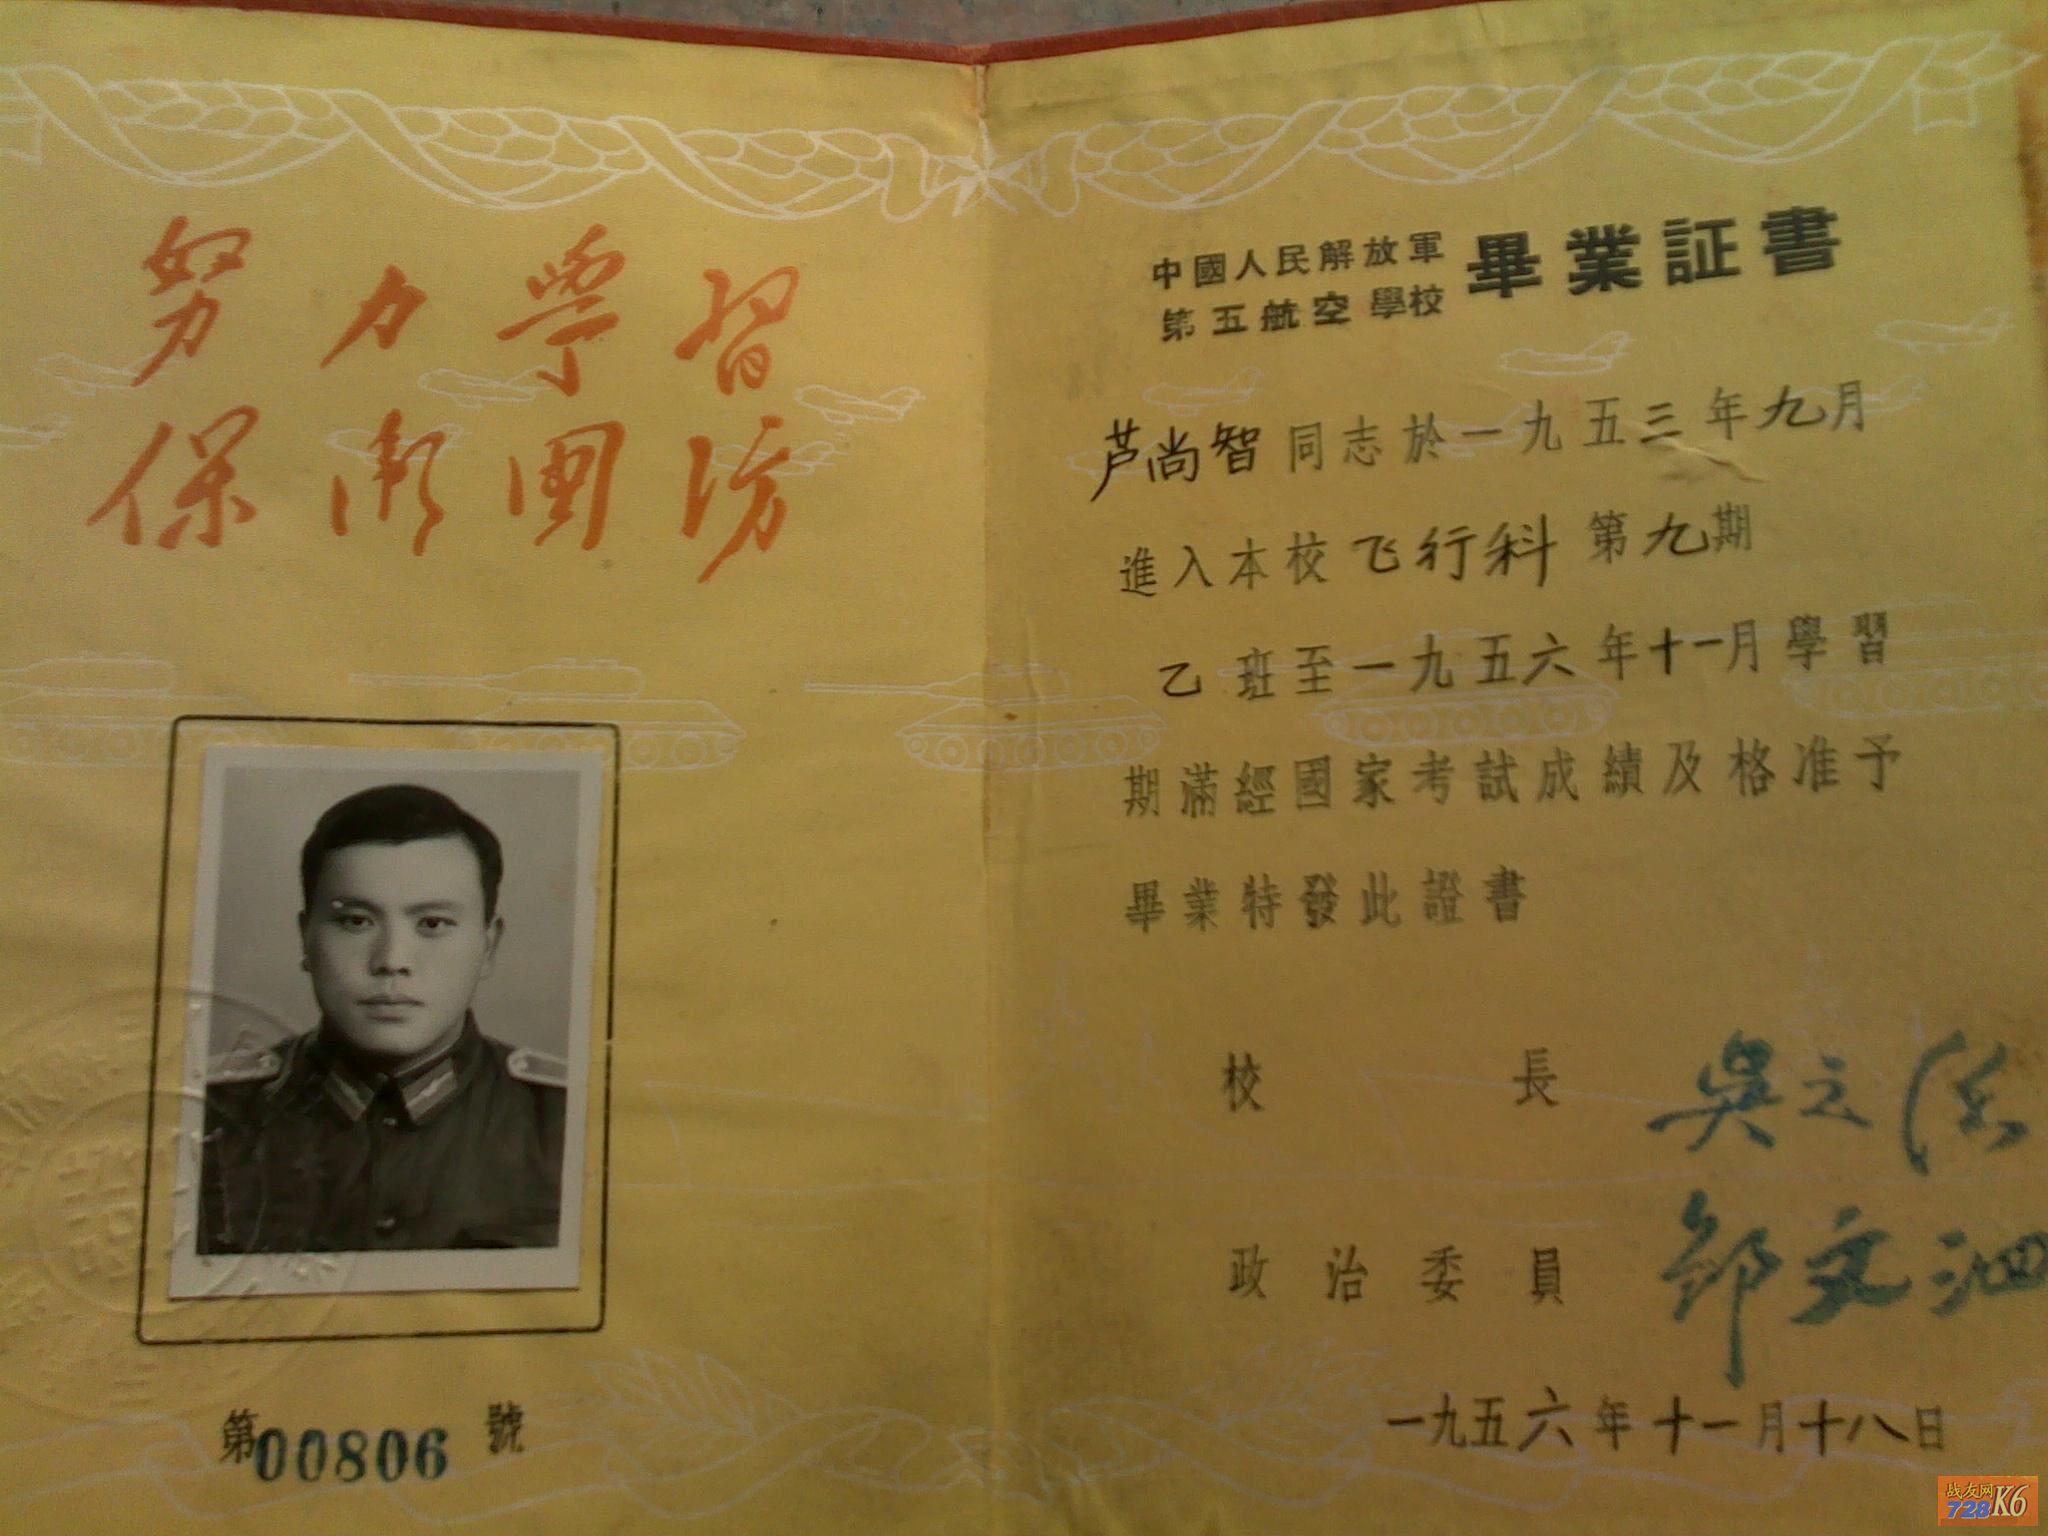 努力學習
保衛國防
第00806號
中國人民解放軍
第五航空學校
畢業証書
芦尚智同志於一九五三年九月
進入本校飞行科第九期
乙班至一九五六年十一月學習
期滿經國家考試成績及格准予
畢業特發此證書
校長 吳之
政治委員 鄒文泗
一九五六年十一月十八日
战友网
728K6